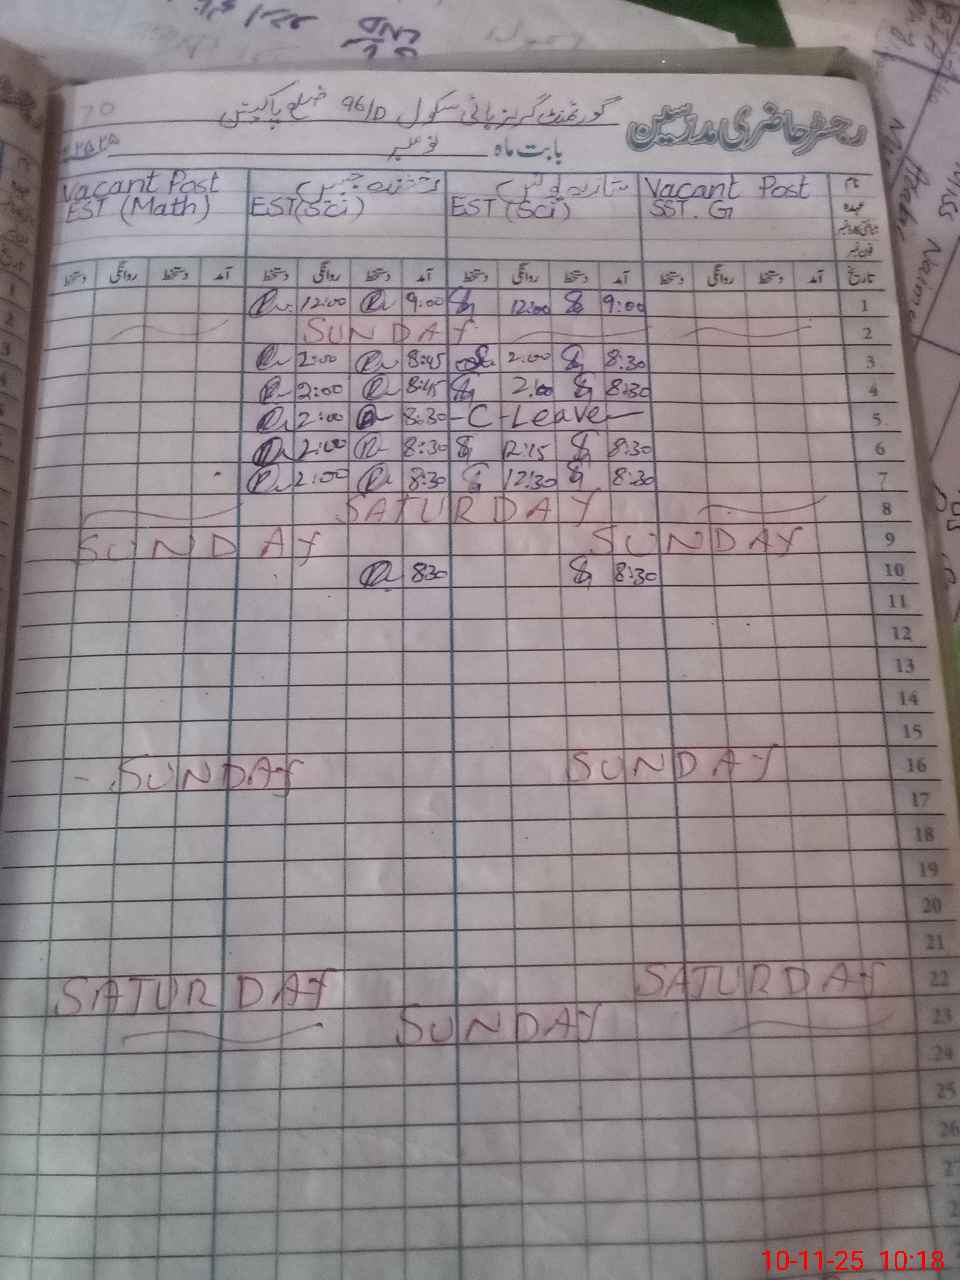 70
رجسٹر حاضری مدرسین گورنمنٹ گرلز ہائی سکول 96/D ضلع پاکپتن
بابت ماہ نومبر ۲۰۲۵
نام Vacant Post Vacant Post
عہدہ SST. G EST (Sci) EST (Sci) EST (Math)
فون نمبر
تاریخ آمد دستخط روانگی دستخط آمد دستخط روانگی دستخط آمد دستخط روانگی دستخط آمد دستخط روانگی دستخط
1 9:00 12:00 9:00 12:00
2 SUNDAY
3 8:30 2:00 8:45 2:00
4 8:30 2:00 8:45 2:00
5 C-Leave 8:30 2:00
6 8:30 12:15 8:30 2:00
7 8:30 12:30 8:30 2:00
8 SATURDAY
9 SUNDAY SUNDAY
10 8:30 8:30
11
12
13
14
15
16 SUNDAY SUNDAY
17
18
19
20
21
22 SATURDAY SATURDAY
23 SUNDAY
24
25
26
27
10-11-25 10:18